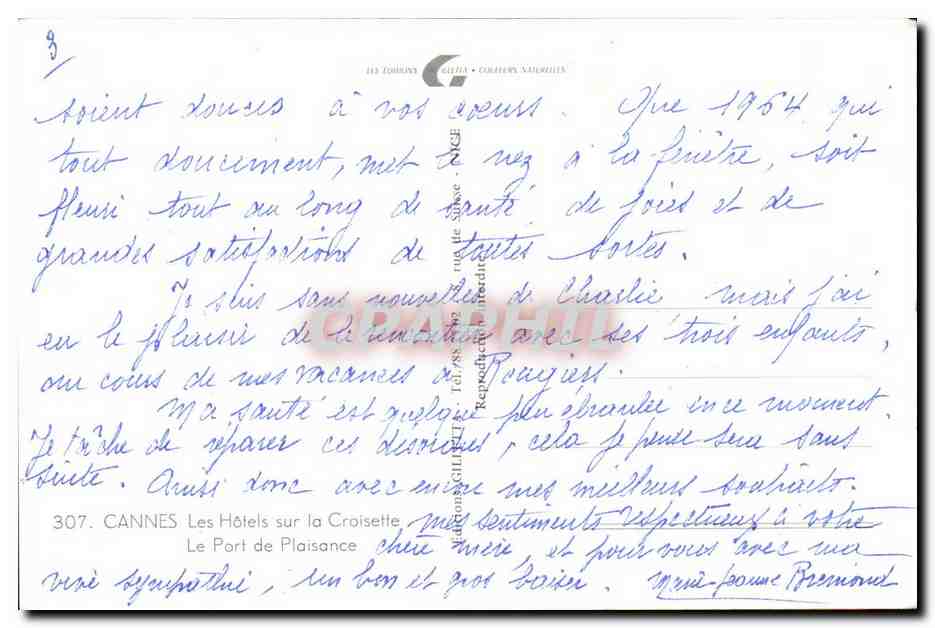 3/
LES EDITIONS GILETTA • COULEURS NATURELLES
soient douces à vos cœurs. Que 1964 qui
tout doucement, met le nez à la fenêtre, soit
fleuri tout au long de santé, de joies et de
grandes satisfactions de toutes sortes.
Je suis sans nouvelles de Charlie mais j'ai
eu le plaisir de le rencontrer avec ses trois enfants,
au cours de mes vacances à Rougiers.
Ma santé est quelque peu ébranlée en ce moment.
Je tâche de réparer ces désordres, cela je pense sera sans
suite. Ainsi donc avec encore mes meilleurs souhaits.
mes sentiments respectueux à votre
chère mère, et pour vous avec ma
vive sympathie, un bon et gros baiser. Marie-Jeanne Bremond
307. CANNES Les Hôtels sur la Croisette
Le Port de Plaisance
Editions GILETTA - Tél. 88 rue de Suisse - NICE
Reproduction Interdite
CPAPHIL